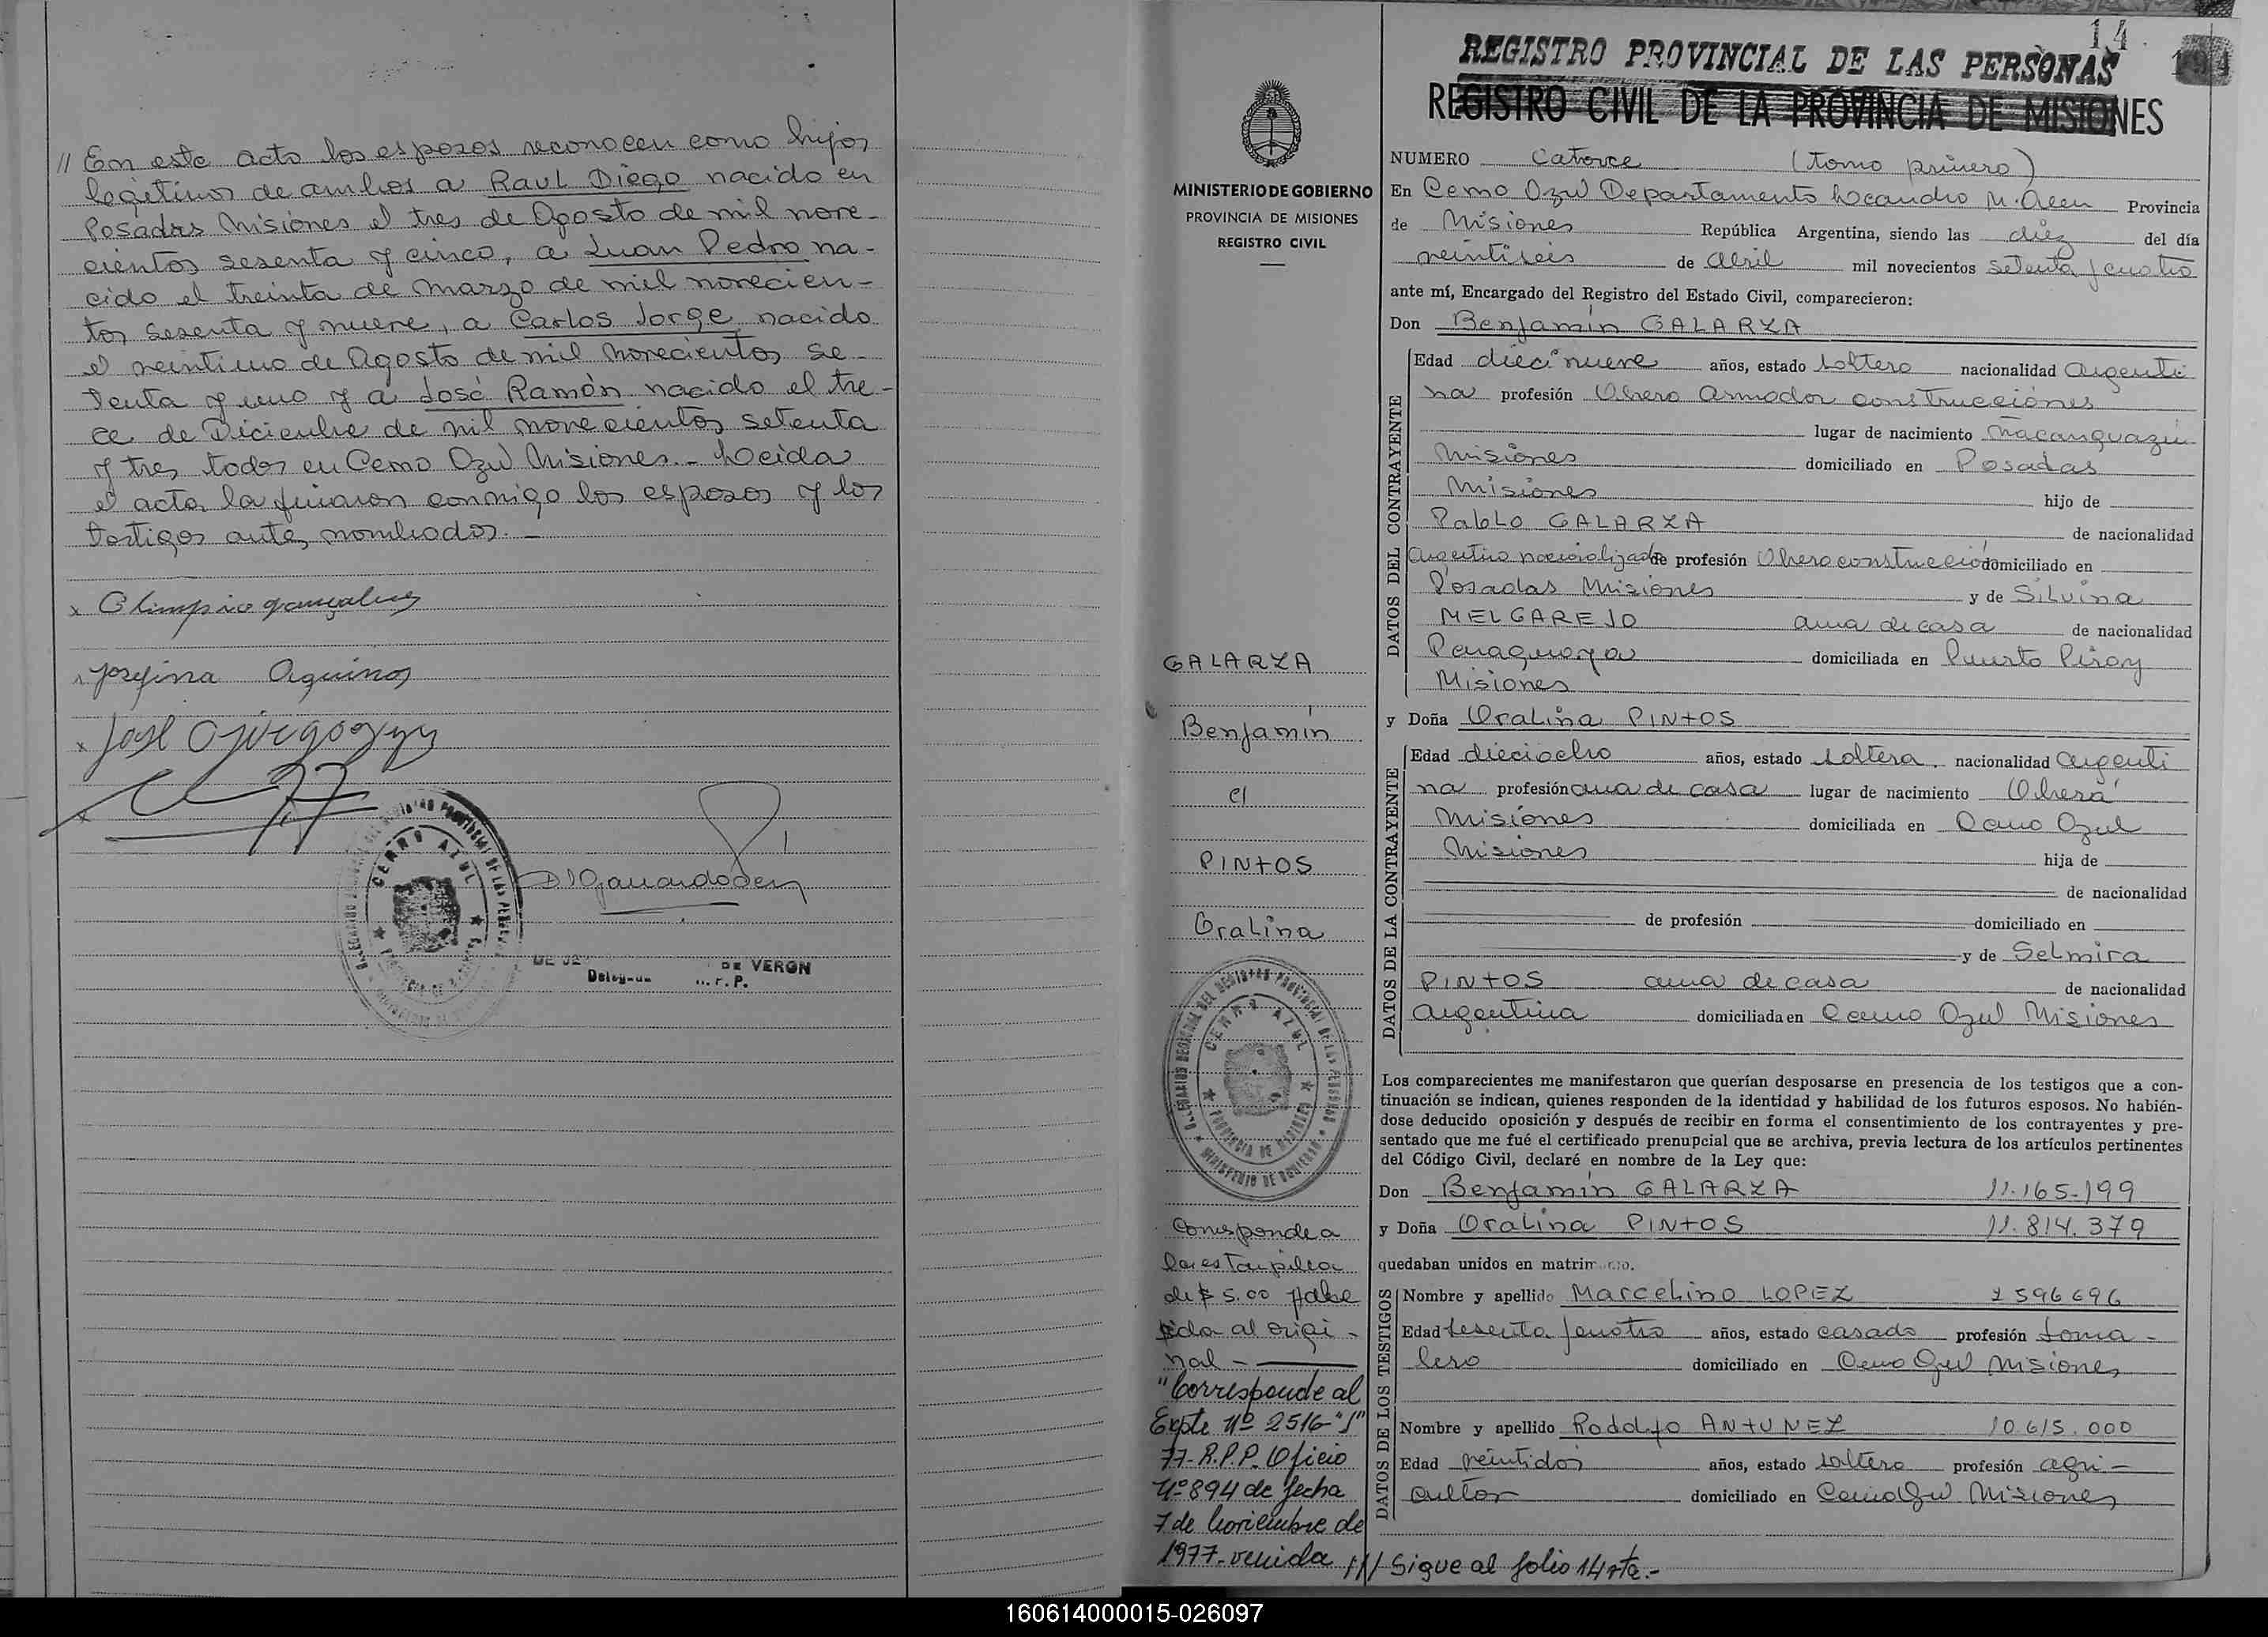 // En este acto los esposos reconocen como hijos
legitimos de ambos a Raul Diego nacido en
Posadas Misiones el tres de Agosto de mil nove-
cientos sesenta y cinco, a Juan Pedro na-
cido el treinta de Marzo de mil novecien-
tos sesenta y nueve, a Carlos Jorge nacido
el veintiuno de Agosto de mil novecientos se-
tenta y uno y a José Ramón nacido el tre-
ce de Diciembre de mil novecientos setenta
y tres, todos en Cerro Azul Misiones.- Leida
el acta la firmaron conmigo los esposos y los
testigos antes nombrados.-
x Olimpio gonçalves
x Josefina Aquino
x José
CERRO AZUL
DE VERON
R. P.
14
REGISTRO PROVINCIAL DE LAS PERSONAS
REGISTRO CIVIL DE LA PROVINCIA DE MISIONES
MINISTERIO DE GOBIERNO
PROVINCIA DE MISIONES
REGISTRO CIVIL
GALARZA
Benjamín
c/
PINTOS
Oralina
CERRO AZUL
PROVINCIA DE MISIONES
MINISTERIO DE GOBIERNO
Corresponde a
la estampilla
de $ 5.00 adhe
rida al origi-
nal -
"Corresponde al
Expte Nº 2516-"J"
77-R.P.P. Oficio
Nº 894 de fecha
7 de Noviembre de
1977- venida /// Sigue al folio 14 vta.-
NUMERO Catorce (tomo primero)
En Cerro Azul Departamento Leandro N. Alem Provincia
de Misiones República Argentina, siendo las diez del día
veintiseis de Abril mil novecientos setenta y cuatro
ante mí, Encargado del Registro del Estado Civil, comparecieron:
Don Benjamín GALARZA
DATOS DEL CONTRAYENTE
Edad diecinueve años, estado soltero nacionalidad argenti
na profesión Obrero armador construcciones
lugar de nacimiento Ñacanguazú
Misiones domiciliado en Posadas
Misiones hijo de
Pablo GALARZA de nacionalidad
Argentino nacionalizado de profesión Obrero construcción domiciliado en
Posadas Misiones y de Silvina
MELGAREJO ama de casa de nacionalidad
Paraguaya domiciliada en Puerto Piray
Misiones
y Doña Oralina PINTOS
DATOS DE LA CONTRAYENTE
Edad dieciocho años, estado soltera. nacionalidad argenti
na profesión ama de casa lugar de nacimiento Oberá
Misiones domiciliada en Cerro Azul
Misiones hija de
de nacionalidad
de profesión domiciliado en
y de Selmira
PINTOS ama de casa de nacionalidad
argentina domiciliada en Cerro Azul Misiones
Los comparecientes me manifestaron que querían desposarse en presencia de los testigos que a con-
tinuación se indican, quienes responden de la identidad y habilidad de los futuros esposos. No habién-
dose deducido oposición y después de recibir en forma el consentimiento de los contrayentes y pre-
sentado que me fué el certificado prenupcial que se archiva, previa lectura de los artículos pertinentes
del Código Civil, declaré en nombre de la Ley que:
Don Benjamín GALARZA 11.165.199
y Doña Oralina PINTOS 11.814.379
quedaban unidos en matrimonio.
DATOS DE LOS TESTIGOS
Nombre y apellido Marcelino LOPEZ 2596696
Edad sesenta y cuatro años, estado casado profesión Jorna-
lero domiciliado en Cerro Azul Misiones
Nombre y apellido Rodolfo ANTUNEZ 10.615.000
Edad veintidos años, estado soltero profesión agri-
cultor domiciliado en Cerro Azul Misiones
160614000015-026097